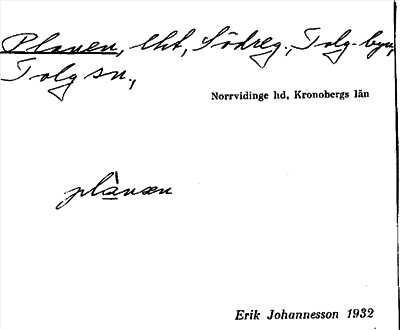 Planen, lht, Södreg., Tolg-byn,
Tolg sn.,
Norrvidinge hd, Kronobergs län
plànæn
Erik Johannesson 1932